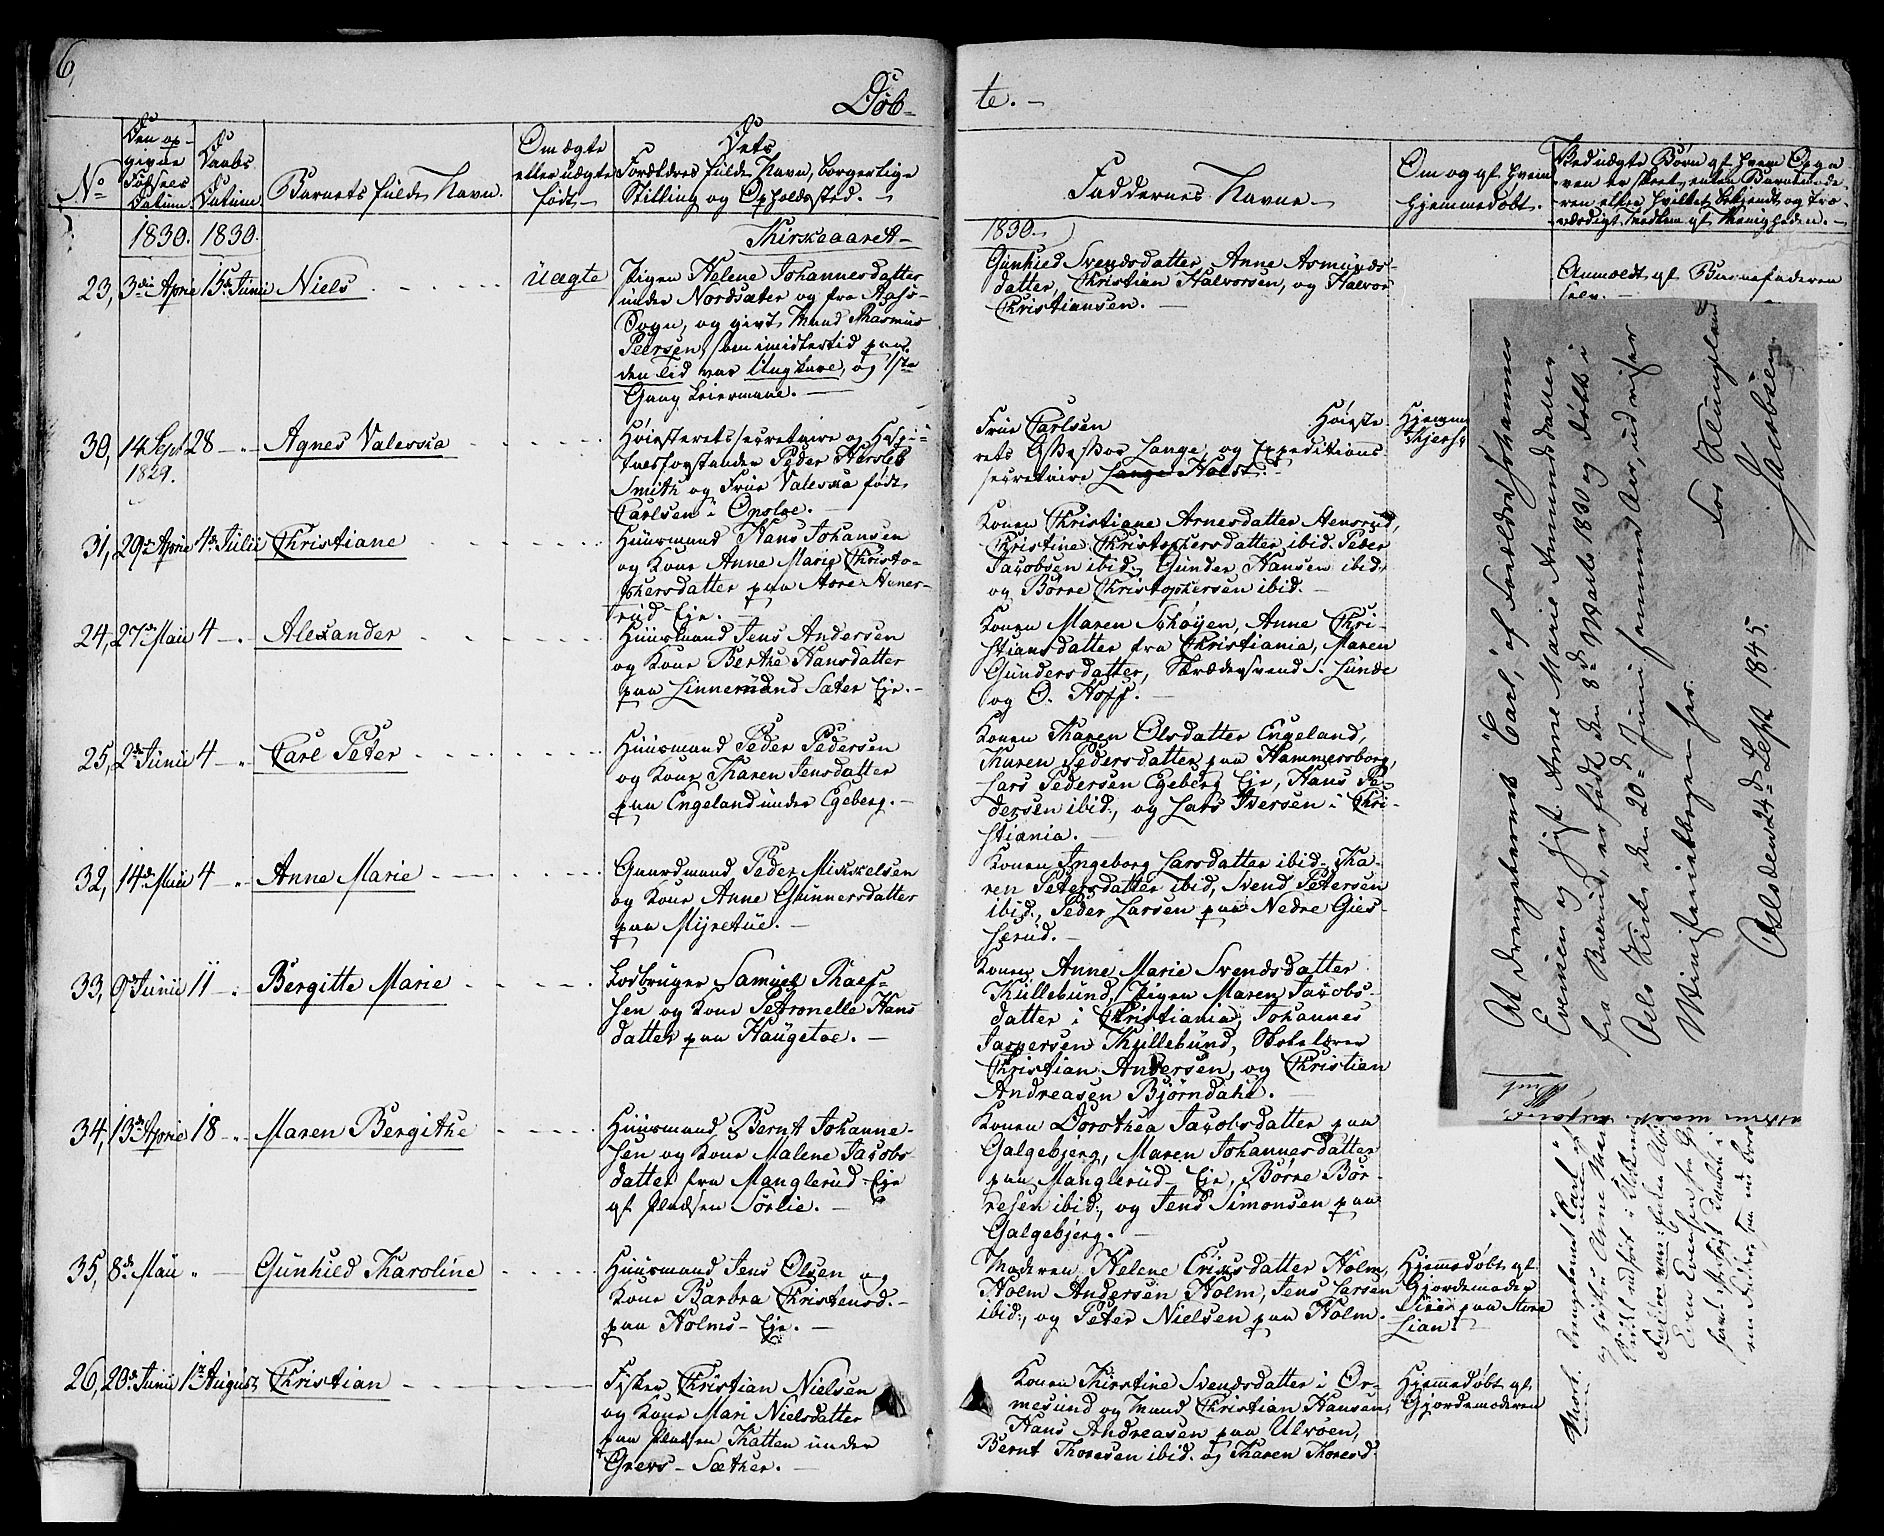 6,
Døb-
te. -
No
Den op-
gevne
Fødsels
Datum
Daabs
Datum
Barnets fulde Navn.
Om ægte
eller uægte
født -
Dets
Forældres fulde Navn, borgerlige
Stilling og Opholdssted. -
Faddernes Navne. -
Om og af hvem
hjemmedøbt.
Ved uægte Børn af hvem Opga
ven er skeet, enten Barnets
værdigt Medlem af Menigheden. -
1830. 1830.
Kirkeaaret -
1830.
23, 3die April 13de Junii Niels Uægte
Pigen Helene Johannesdatter
under Nordsæter og fra Aass-
Sogn, og givt Mand Rasmus
Peersen, som imidlertid paa
den Tid var Ungkarl, og 1ste
Gang Leiermaal. -
Gunhild Svendsdatter, Anne Asmunds-
datter, Christian Halvorsen, og Halvor
Christiansen. -
Anmeldt af Barnefaderen
selv. -
30, 14 Sept 28 - Agnes Valeska
1829.
Høiesteretssecretaire og Hospi-
talsforstander Peder Hersleb
Smith og Frue Valeska født
Carlsen i Opsloe. -
Frue Carlsen Høieste-
rets Assessor Lange, og Expeditions-
secretaire Lange Holst. -
31, 29de April 4de Julii Christiane
Huusmand Hans Johansen
og Kone Anne Marie Christo-
phersdatter paa Store Abner-
rud Eje. -
Konen Christiane Arnesdatter Stensrud,
Christine Christophersdatter ibid. Peder
Jacobsen ibid., Gunder Hansen ibid.
og Børre Christophersen ibid. -
24, 27de Maii 4 - Alexander
Huusmand Jens Andersen
og Kone Berthe Hansdatter
paa Linnerud Sæter Eje. -
Konen Maren Schøyen, Anne Chri-
stiansdatter fra Christiania, Maren
Gundersdatter, Skrædersvend S. Lunde
og O. Hoff. -
25, 2de Junii 4 - Carl Peter
Huusmand Peder Pedersen
og Kone Karen Jensdatter
paa Engeland under Egeberg. -
Konen Karen Olsdatter Engeland,
Karen Pedersdatter paa Hammersborg,
Lars Pedersen Egeberg Eje, Hans Pe-
dersen ibid., og Lars Iversen i Chri-
stiania. -
32, 14de Maii 4 - Anne Marie
Gaardmand Peder Mikkelsen
og Kone Anne Gunnersdatter
paa Myretue. -
Konen Ingeborg Larsdatter ibid. Ka-
ren Petersdatter ibid, Svend Petersen
ibid., Peder Larsen paa Nedre Gies-
serud. -
33, 9de Junii 11 - Bergitte Marie
Lodbruger Samuel
sen og Kone Petronelle Hans
datter paa Haugetoe. -
Konen Anne Marie Svendsdatter
Kullebund, Pigen Maren Jacobs-
datter i Christiania, Johannes
Jaspersen Kullebund, Skolelærer
Christian Andersen, og Christian
Andreasen Bjørndahl. -
34, 13de April 18 - Maren Bergithe
Huusmand Bernt Johanne-
sen og Kone Malene Jacobs
datter fra Manglerud-Eje
af Pladsen Sørlie. -
Konen Dorothea Jacobsdatter paa
Galgebjerg, Maren Johannesdatter
paa Manglerud-Eje, Børre Bør-
resen ibid., og Jens Simonsen paa
Galgebjerg. -
35, 8de Maii " Gunhild Karoline
Huusmand Jens Olsen og
Kone Barbra Christensd. -
paa Holms-Eje. -
Madren Helene Ericsdatter Holm,
Holm Andersen Holm, Jens Larsen
ibid., og Peter Nielsen paa Holm.
Hjemmedøbt af
Gjordemoder
paa Store
Lian.
26, 20de Junii 1ste August, Christian
Fisker Christian Nielsen
og Kone Mari Nielsdatter
paa Pladsen Katten under
Grevs-Sæther. -
Konen Kirstine Svendsdatter i Or-
mesund og Mand Christian Hansen,
Hans Andreasen paa Ulvøen,
Bernt Thoresen ibid. og Karen Thoresd.
Hjemmedøbt af
Gjordemoderen
At Drengebarnet "Carl", af Forældre Johannes
Evensen og Pigt. Anne Marie Amundsdatter
fra Bælerud, er født den 8d Marts 1830 og døbt i
Oslo Kirke den 20d Juni samme Aar, udviser
Ministerialbogen her.
Oslo den 24d Sept 1845.
For Klungland
Jacobsen